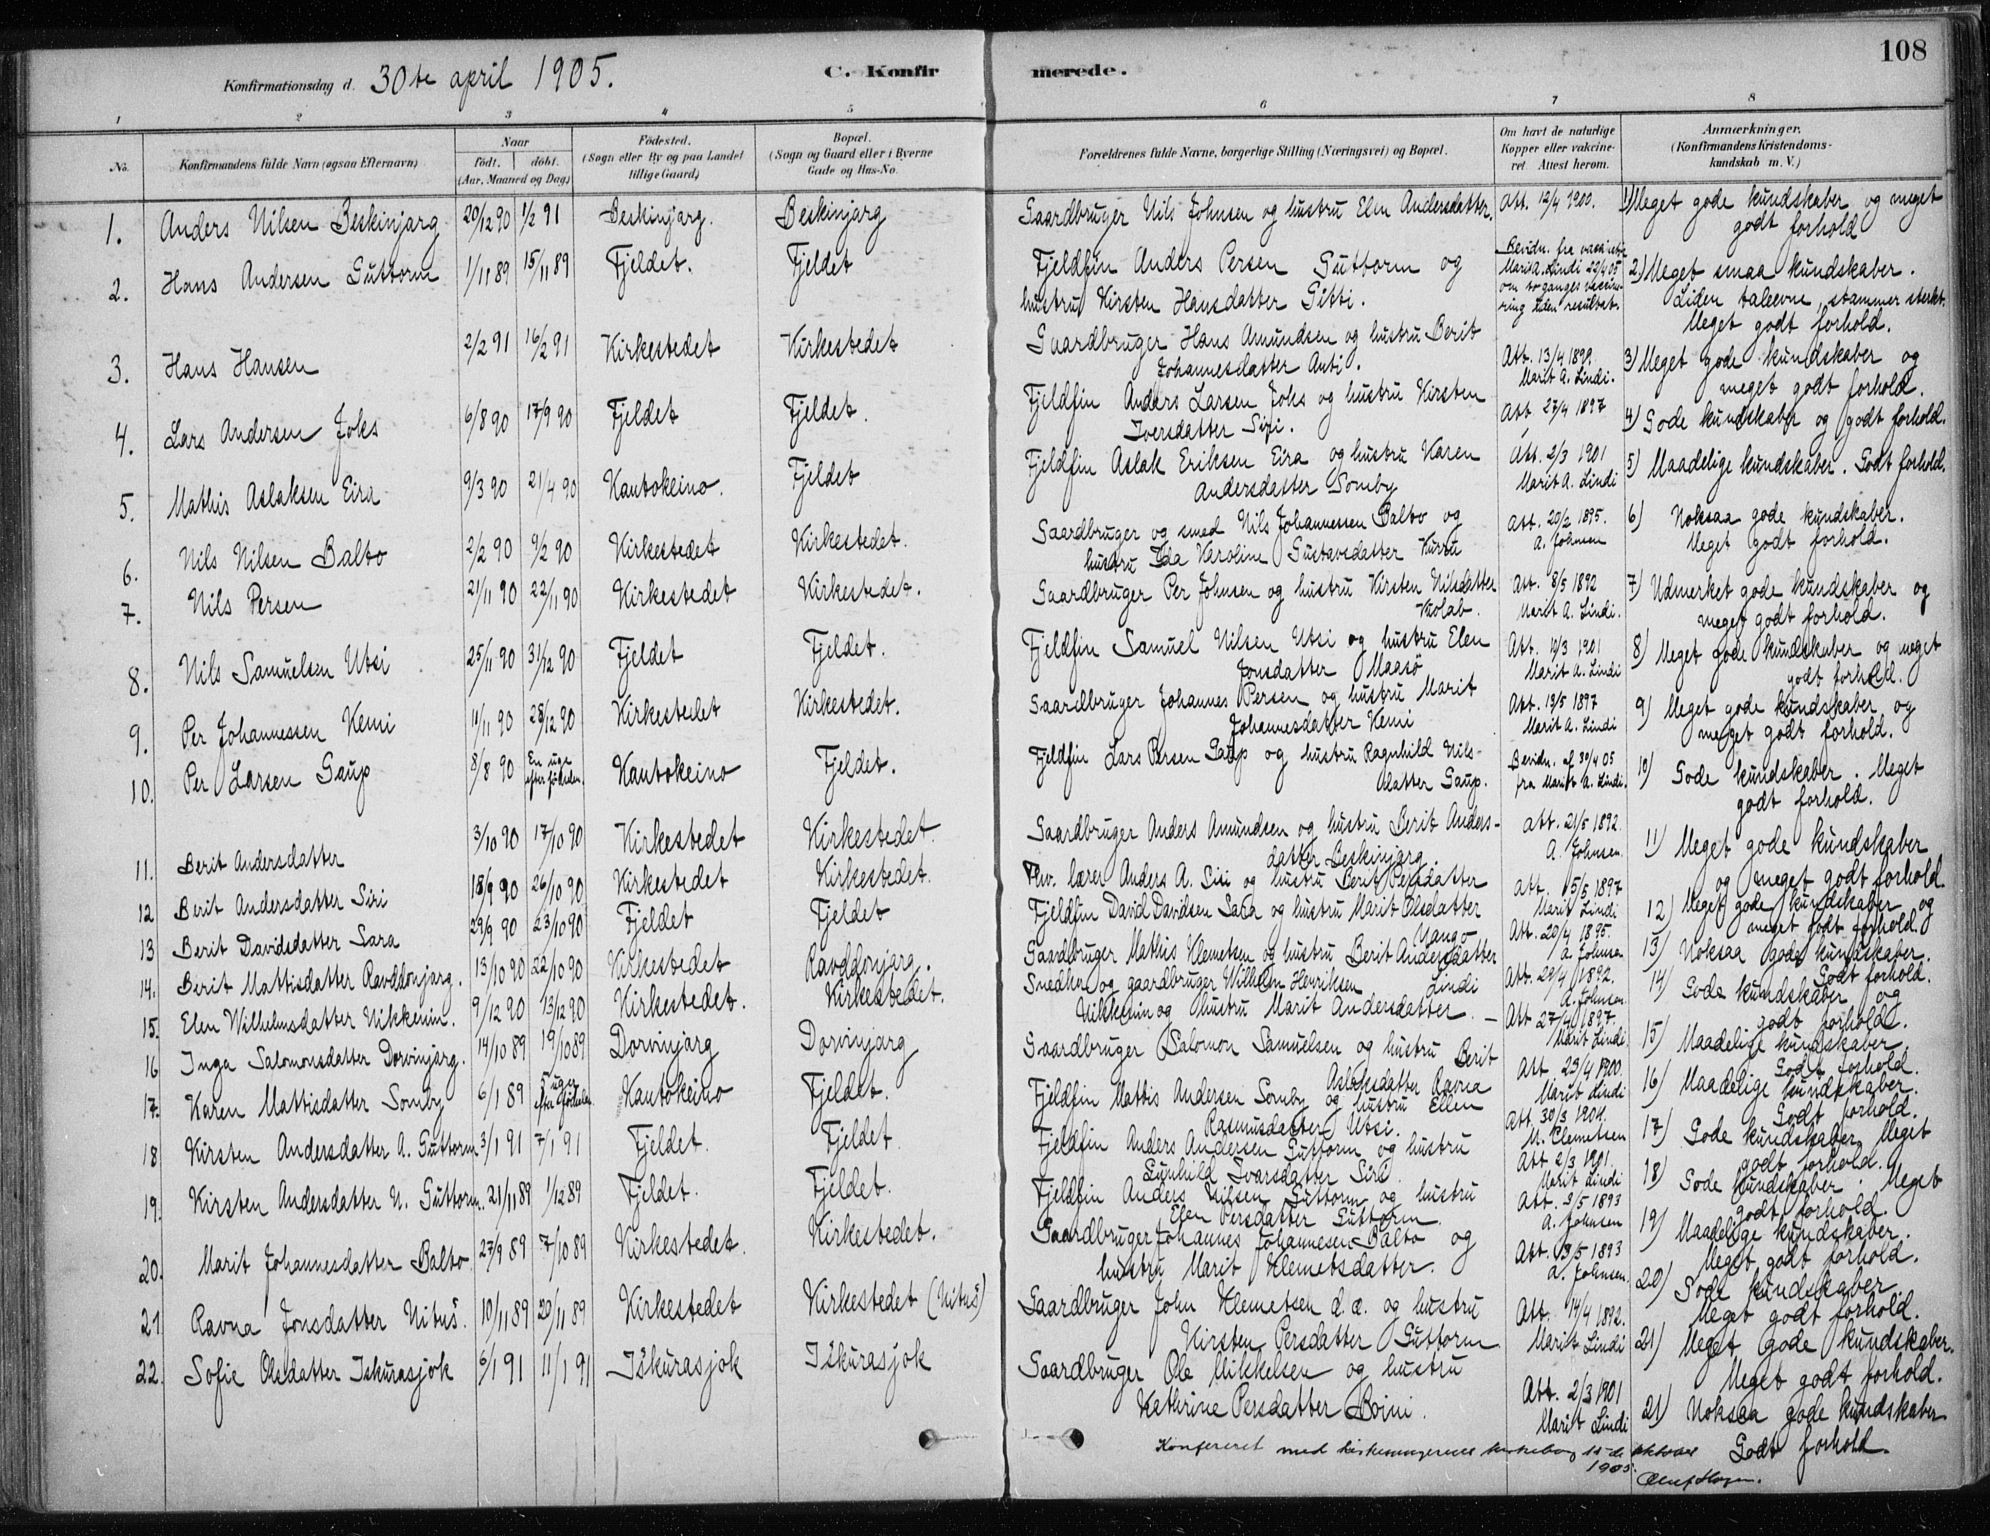 108
Konfirmationsdag d. 30te april 1905. C. Konfirmerede.
1 2 3 4 5 6 7 8
No. Konfirmandens fulde Navn (ogsaa Efternavn) Naar født. døbt. (Aar, Maaned og Dag) Fødested. (Sogn eller By og paa Landet tillige Gaard) Bopæl. (Sogn og Gaard eller i Byerne Gade og Hus-No. Forældrenes fulde Navne, borgerlige Stilling (Næringsvei) og Bopæl. Om havt de naturlige Kopper eller vaccineret Attest herom. Anmærkninger. (Konfirmandens Kristendomskundskab m. V.)
1. Anders Nilsen Beskinjarg 20/12 90 1/2 91 Beskinjarg. Beskinjarg Gaardbruger Nils Johnsen og hustru Elen Andersdatter. Att. 12/4 1900. 1) Meget gode kundskaber og meget
godt forhold
2. Hans Andersen Guttorm 1/11 89 15/11 89 Fjeldet. Fjeldet Fjeldfin Anders Persen Guttorm og
hustru Kirsten Hansdatter Gitti. Bevidn. fra
Marit A. Lindi 29/4 05
om to ganges vaccinering uden resultat. 2) Meget smaa kundskaber.
Liden taleevne, stammer sterkt.
Meget godt forhold.
3. Hans Hansen 2/2 91 16/2 91 Kirkestedet Kirkestedet Gaardbruger Hans Amundsen og hustru Berit
Johannesdatter Anti. Att. 13/4 1899.
Marit A. Lindi. 3) Meget gode kundskaber og
meget godt forhold.
4. Lars Andersen Joks 6/8 90 17/9 90 Fjeldet Fjeldet. Fjeldfin Anders Larsen Joks og hustru Kirsten
Iversdatter Siri. Att 27/4 1897 4) Gode kundskaber og godt forhold.
5. Mathis Aslaksen Eira 9/3 90 21/4 90 Kautokeino. Fjeldet Fjeldfin Aslak Eriksen Eira og hustru Karen
Andersdatter Somby Att. 2/3 1901
Marit A. Lindi 5) Maadelige kundskaber. Godt forhold.
6. Nils Nilsen Balto 2/2 90 9/2 90 Kirkestedet Kirkestedet. Gaardbruger og smed Nils Johannessen Balto og
hustru Ida Karoline Gustavsdatter Kurru Att. 20/2 1895.
A. Johnsen 6) Noksaa gode kundskaber.
Meget godt forhold.
7. Nils Persen 21/11 90 22/11 90 Kirkestedet Kirkestedet. Gaardbruger Per Johnsen og hustru Kirsten Nilsdatter
Att. 8/5 1892
Marit A. Lindi. 7) Udmerket gode kundskaber og
meget godt forhold.
8. Nils Samuelsen Utsi 25/11 90 31/12 90 Fjeldet Fjeldet. Fjeldfin Samuel Nilsen Utsi og hustru Elen
Jonsdatter Maasø Att. 19/3 1901
Marit A. Lindi 8) Meget gode kundskaber og meget
godt forhold.
9. Per Johannessen Kemi 11/11 90 28/12 90 Kirkestedet Kirkestedet. Gaardbruger Johannes Persen og hustru Marit
Johannesdatter Kemi Att. 13/5 1897
Marit A. Lindi 9) Meget gode kundskaber og
meget godt forhold.
10. Per Larsen Gaup 8/8 90 En uge
efter fødselen. Kautokeino Fjeldet. Fjeldfin Lars Persen Gaup og hustru Ragnhild Nils-
datter Gaup. Bevidn. af 30/4 05
fra Marit A. Lindi. 10) Gode kundskaber. Meget
godt forhold.
11. Berit Andersdatter 3/10 90 17/10 90 Kirkestedet Kirkestedet. Gaardbruger Anders Amundsen og hustru Berit Anders-
datter Beskinjarg. Att. 21/5 1892.
A. Johnsen. 11) Meget gode kundskaber
og meget godt forhold.
12 Berit Andersdatter Siri 18/9 90 26/10 90 Kirkestedet Kirkestedet. lærer Anders A. Siri og hustru Berit Persdatter Att. 15/5 1897
Marit Lindi 12) Meget gode kundskaber og
meget godt forhold.
13 Berit Davidsdatter Sara 29/9 90 23/10 90 Fjeldet Fjeldet Fjeldfin David Davidsen Sara og hustru Marit Olsdatter
Vango Att. 20/4 1895.
A. Johnsen 13) Noksaa gode kundskaber.
Godt forhold.
14. Berit Mattisdatter Ravddonjarg. 13/10 90 22/10 90 Kirkestedet Ravddonjarg. Gaardbruger Mathis Klemetsen og hustru Berit Andersdatter
Lindi Att. 29/4 1892.
A. Johnsen 14) Gode kundskaber og
godt forhold.
15. Elen Wilhelmsdatter Nikkenin. 9/12 90 13/12 90 Kirkestedet. Kirkestedet. Snedker og gaardbruger Wilhelm Henriksen
Nikkenin og hustru Marit Andersdatter. — Att 27/4 1897.
Marit Lindi. 15) Maadelige kundskaber.
Godt forhold.
16 Inga Salomonsdatter Dorvinjarg. 14/10 89 19/10 89 Dorvinjarg Dorvinjarg Gaardbruger Salomon Samuelsen og hustru Berit
Aslaksdatter Ravna Att. 23/4 1900.
Marit Lindi 16) Maadelige kundskaber.
Godt forhold.
17. Karen Mattisdatter Somby 6/1 89 5 uger
efter fødselen. Kautokeino Fjeldet. Fjeldfin Mattis Andersen Somby og hustru Ellen
Rasmusdatter Utsi. Att. 30/3 1901.
M. Klemetsen 17) Gode kundskaber. Meget
godt forhold.
18 Kirsten Andersdatter A. Guttorm 3/1 91 7/1 91 Fjeldet. Fjeldet. Fjeldfin Anders Andersen Guttorm og hustru
Gunhild Ivarsdatter Siri. Att 2/3 1901.
Marit Lindi 18) Gode kundskaber. Meget
godt forhold.
19. Kirsten Andersdatter N. Guttorm. 21/11 89 1/12 89 Fjeldet. Fjeldet. Fjeldfin Anders Nilsen Guttorm og hustru
Elen Persdatter Guttorm. Att. 9/5 1893
A. Johnsen 19) Maadelige kundskaber.
Meget godt forhold.
20. Marit Johannesdatter Balto 27/9 89 7/10 89 Kirkestedet. Kirkestedet. Gaardbruger Johannes Johannesen Balto og
hustru Marit Klemetsdatter. Att. 13/5 1893
A. Johnsen. 20) Gode kundskaber
Meget godt forhold.
21 Ravna Jonsdatter Nitus. 10/11 89 20/11 89 Kirkestedet Kirkestedet (Nitus) Gaardbruger John Klemetsen d.æ. og hustru
Kirsten Persdatter Guttorm Att. 14/4 1892.
Marit Lindi 21) Meget gode kundskaber.
Meget godt forhold.
22. Sofie Olsdatter Iskurasjok 6/1 91 11/1 91 Iškurasjok Iškurasjok Gaardbruger Ole Mikkelsen og hustru
Kathrine Persdatter Boini. Att. 2/3 1901
Marit Lindi 21) Noksaa gode kundskaber
Godt forhold.
Konfereret med kirkesangerens kirkebog 11 de oktober
1905.
Oluf Hagen.